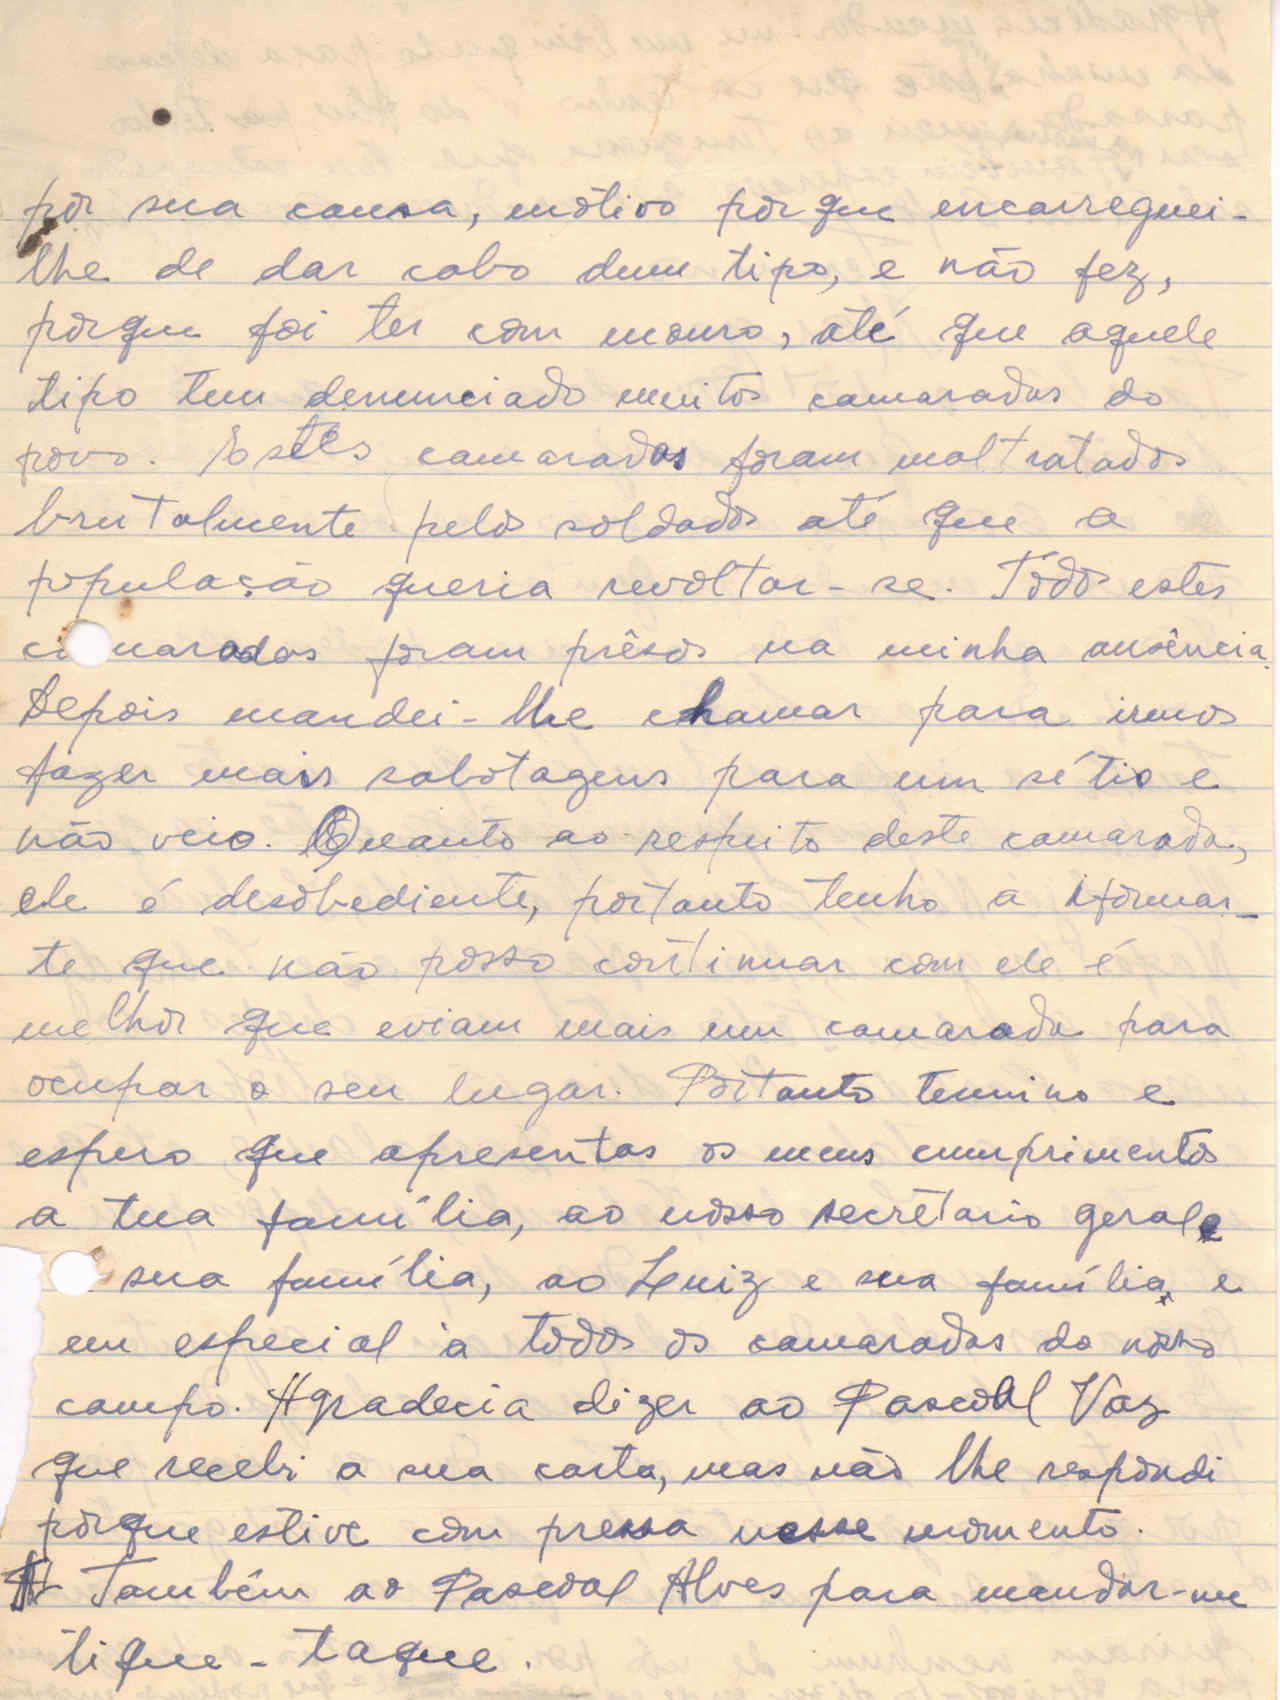 por sua causa, motivo porque encarreguei-
lhe de dar cabo dum tipo, e não fez,
porque foi ter com mouro, até que aquele
tipo tem denunciado muitos camaradas do
povo. Estes camaradas foram maltratados
brutalmente pelos soldados até que a
população queria revoltar-se. Todos estes
camaradas foram prêsos na minha ausência.
Depois mandei-lhe chamar para irmos
fazer mais sabotagens para um sétio e
não veio. Quanto ao respeito deste camarada,
ele é desobediente, portanto tenho a iformar-
te que não posso continuar com ele é
melhor que eviam mais um camarada para
ocupar o seu lugar. Portanto termino e
espero que apresentas os meus cumprimentos
a tua família, ao nosso secretario geral e
sua família, ao Luiz e sua família, e
em especial à todos os camaradas do nosso
campo. Agradecia dizer ao Pascoal Vaz
que recebi a sua carta, mas não lhe respondi
porque estive com pressa nesse momento.
Também ao Pascoal Alves para mandar-me
tique-taque.